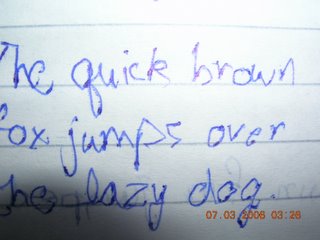 The quick brown
fox jumps over
the lazy dog.
07.03.2006 03:28